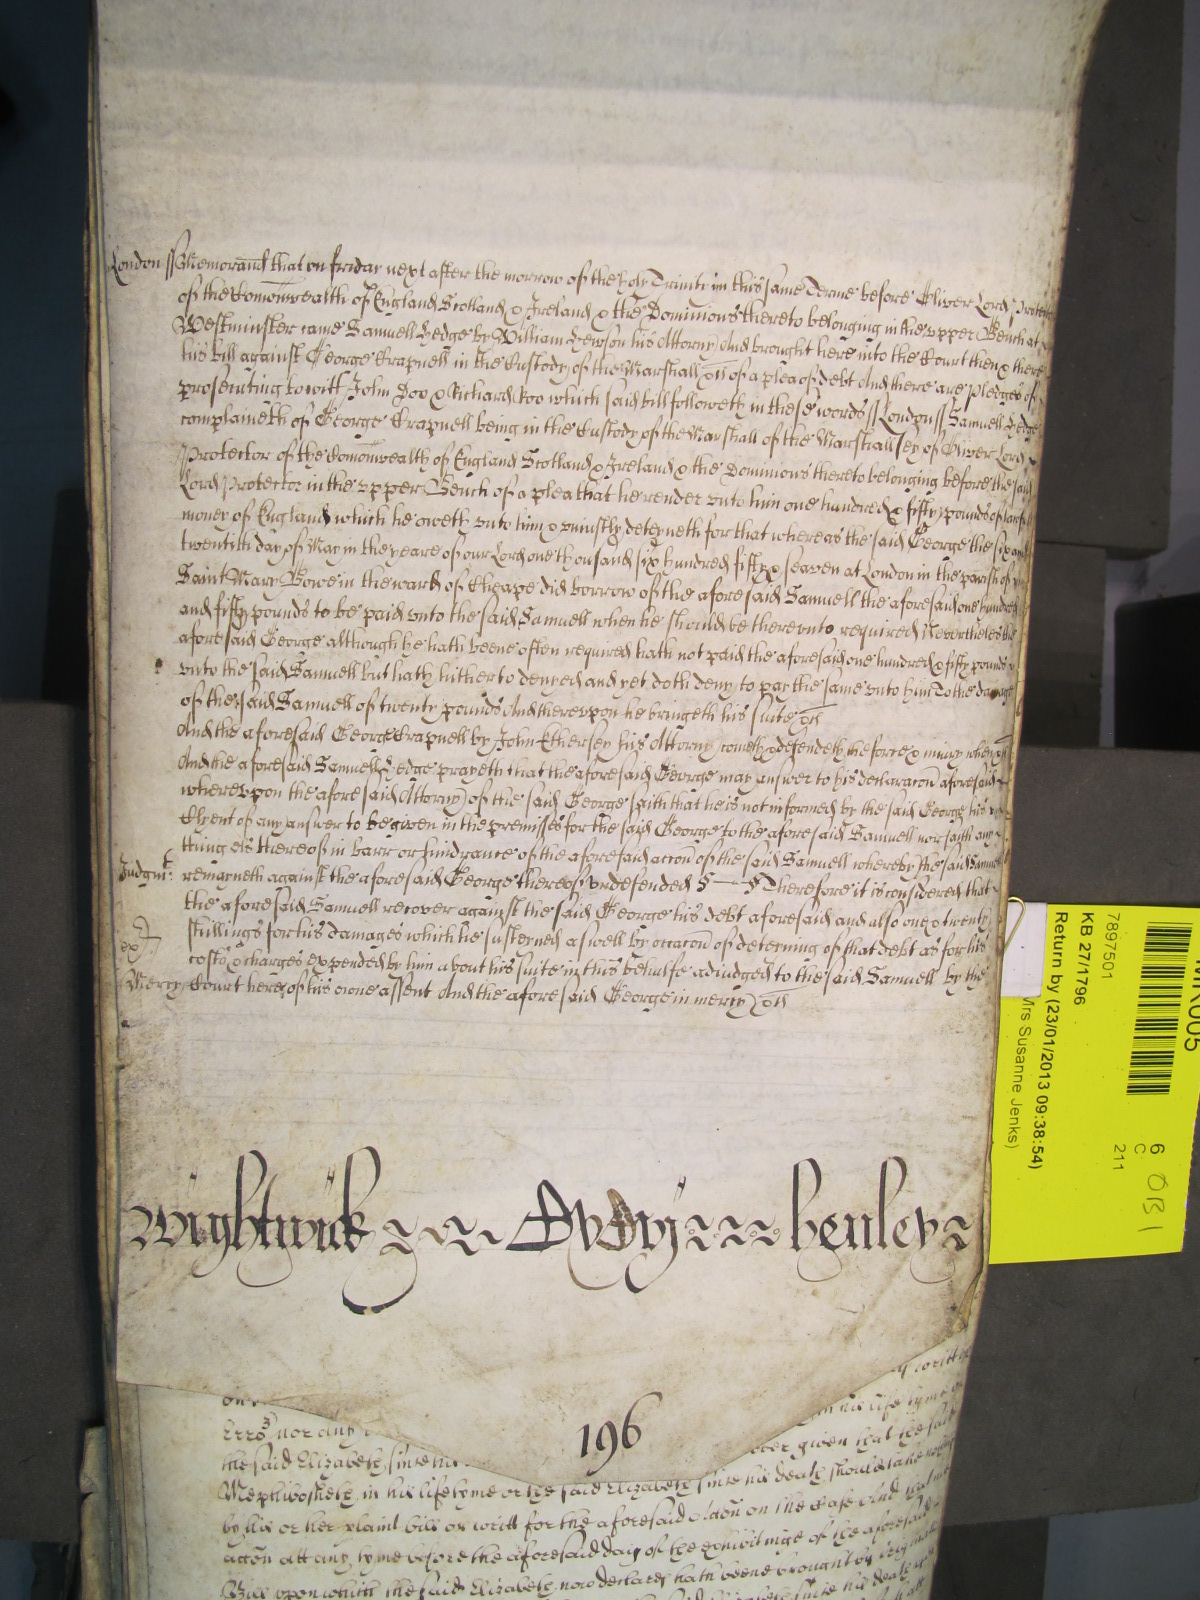 London ss Memorand that on friday next after the morrow of the holy Trinity in this same Terme before Oliver Lord Protector
of the Comonwealth of England Scotland & Ireland & the Dominions thereto belonging in the vpper Bench at
Westminster came Samuell Hedge by William Hewson his Attorny And brought here into the Court then & there
his bill against George Crapnell in the Custody of the Marshall &c of a plea of debt And there are pledges of
prosecuting to witt John Doo & Richard Roo which said bill followeth in these words ss London ss Samuell Hedge
complaineth of George Crapnell being in the Custody of the Marshall of the Marshallsey of Oliver Lord
Protector of the Comonwealth of England Scotland & Ireland & the Dominions thereto belonging before the said
Lord Protector in the vpper Bench of a plea that he render vnto him one hundred & fifty pounds of lawfull
money of England which he oweth vnto him & vniustly deteyneth for that whereas the said George the six and
twentith day of May in the yeare of our Lord one thousand six hundred fifty & seaven at London in the parish of
Saint Mary Bowe in the ward of Cheape did borrow of the aforesaid Samuell the aforesaid one hundred
and fifty pounds to be paid vnto the said Samuell when he should be therevnto required Neverthelesse the
aforesaid George although he hath beene often required hath not paid the aforesaid one hundred & fifty pounds
vnto the said Samuell but hath hitherto denyed and yet doth deny to pay the same vnto him To the damage
of the said Samuell of twenty pounds And therevpon he bringeth his suite &c
And the aforesaid George Crapnell by John Ethersey his Attorny cometh & defendeth the force & iniury when &c
And the aforesaid Samuell Hedge prayeth that the aforesaid George may answer to his declaracon aforesaid
wherevpon the aforesaid Attorny of the said George saith that he is not informed by the said George his
Clyent of any answer to be given in the premisses for the said George to the aforesaid Samuell nor saith any
thing els thereof in barr or hindrance of the aforesaid accon of the said Samuell whereby the said Samuell
Judgmt remayneth against the aforesaid George thereof vndefended § — § Therefore it is considered that
the aforesaid Samuell recover against the said George his debt aforesaid and also one & twenty
shillings for his damages which he susteyned aswell by occacon of deteyning of that debt as for his
ex costs & charges expended by him about his suite in this behalfe adiudged to the said Samuell by the
Mercy Court here of his owne assent And the aforesaid George in mercy &c
Wightwick henley
196
nor any
the said Elizabeth since his
ever given that the said
Mephibosheth in his lifetyme or the said Elizabeth since his death should take nothing
by his or her plaint bill or writt for the aforesaid
accon att any tyme before the aforesaid day of the exhibitinge of the aforesaid
Bill vpon which the said Elizabeth now declares hath beene brought by
7897501
KB 27/1796
Return by (23/01/2013 09:38:54)
Mrs Susanne Jenks)
6
C
211